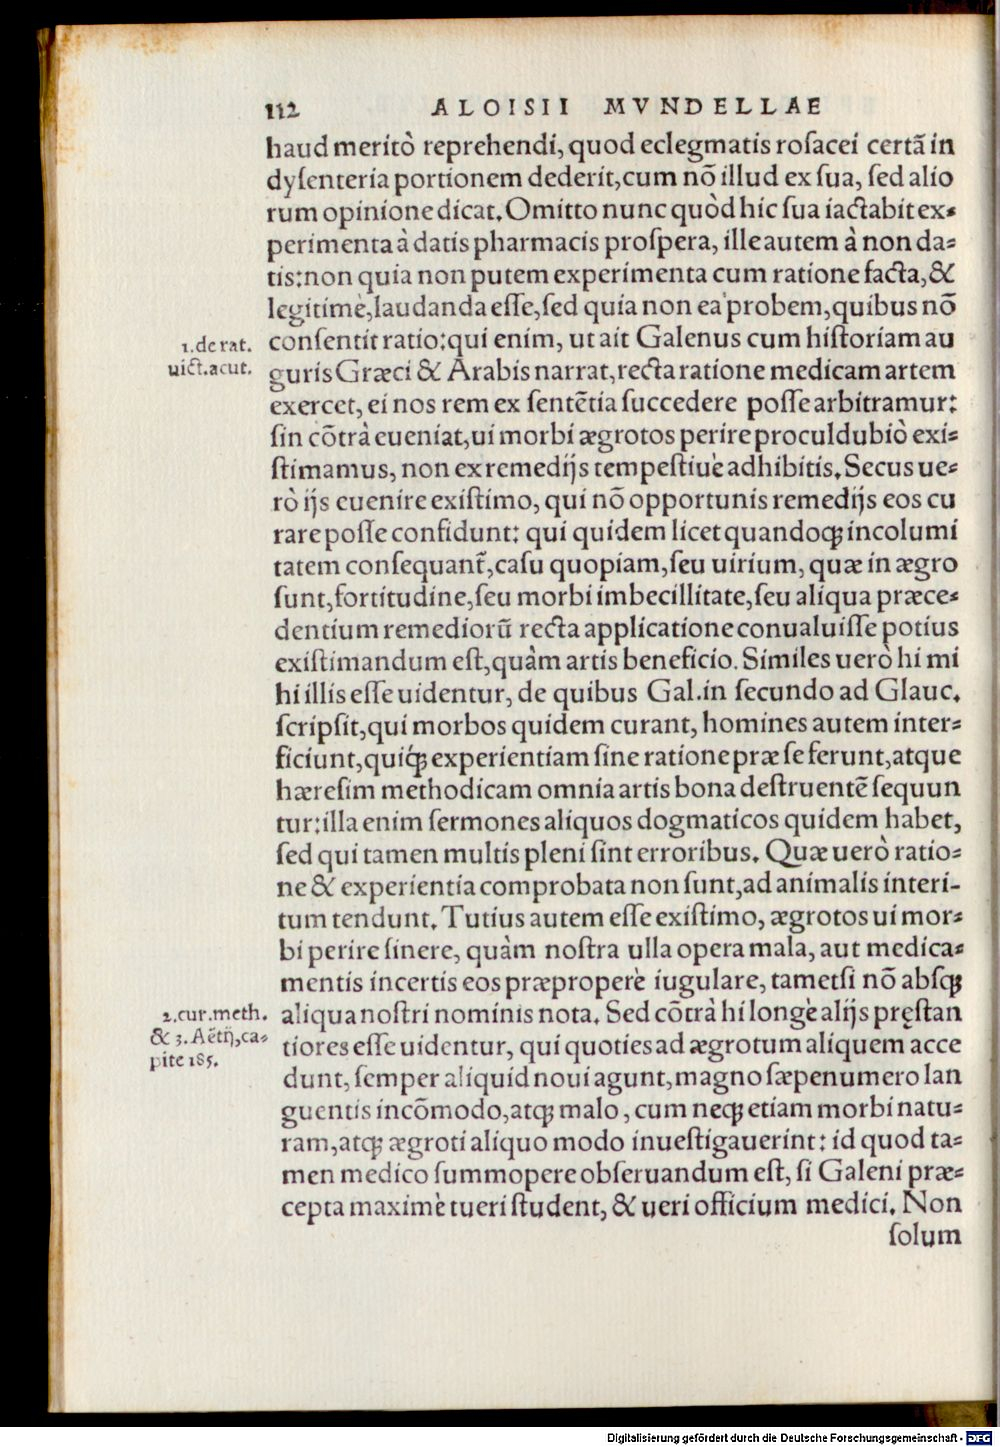 112 ALOISII MVNDELLAE
haud meritò reprehendi, quod eclegmatis roſacei certã in
dyſenteria portionem dederit, cum nõ illud ex ſua, ſed alio
rum opinione dicat. Omitto nunc quòd hic ſua iactabit ex-
perimenta à datis pharmacis proſpera, ille autem à non da-
tis: non quia non putem experimenta cum ratione facta, &
legitimè, laudanda eſſe, ſed quia non ea probem, quibus nõ
1. de rat.
uict. acut.
conſentit ratio: qui enim, ut ait Galenus cum hiſtoriam au
guris Græci & Arabis narrat, recta ratione medicam artem
exercet, ei nos rem ex ſentẽtia ſuccedere poſſe arbitramur:
ſin cõtrà eueniat, ui morbi ægrotos perire proculdubiò exi-
ſtimamus, non ex remedijs tempeſtiuè adhibitis. Secus ue-
rò ijs euenire exiſtimo, qui nõ opportunis remedijs eos cu
rare poſſe confidunt: qui quidem licet quandoqꝫ incolumi
tatem conſequant᷑, caſu quopiam, ſeu uirium, quæ in ægro
ſunt, fortitudine, ſeu morbi imbecillitate, ſeu aliqua præce-
dentium remediorũ recta applicatione conualuiſſe potius
exiſtimandum eſt, quàm artis beneficio. Similes uerò hi mi
hi illis eſſe uidentur, de quibus Gal. in ſecundo ad Glauc.
ſcripſit, qui morbos quidem curant, homines autem inter-
ficiunt, quiqꝫ́ experientiam ſine ratione præ ſe ferunt, atque
hæreſim methodicam omnia artis bona deſtruentẽ ſequun
tur: illa enim ſermones aliquos dogmaticos quidem habet,
ſed qui tamen multis pleni ſint erroribus. Quæ uerò ratio-
ne & experientia comprobata non ſunt, ad animalis interi-
tum tendunt. Tutius autem eſſe exiſtimo, ægrotos ui mor-
bi perire ſinere, quàm noſtra ulla opera mala, aut medica-
mentis incertis eos præproperè iugulare, tametſi nõ abſqꝫ
2. cur. meth.
& 3. Aẽtij, ca-
pite 185.
aliqua noſtri nominis nota. Sed cõtrà hi longè alijs pręſtan
tiores eſſe uidentur, qui quoties ad ægrotum aliquem acce
dunt, ſemper aliquid noui agunt, magno ſæpenumero lan
guentis incõmodo, atqꝫ malo, cum neqꝫ etiam morbi natu-
ram, atqꝫ ægroti aliquo modo inueſtigauerint: id quod ta-
men medico ſummopere obſeruandum eſt, ſi Galeni præ-
cepta maximè tueri ſtudent, & ueri officium medici. Non
ſolum
Digitalisierung gefördert durch die Deutsche Forschungsgemeinschaft - DFG